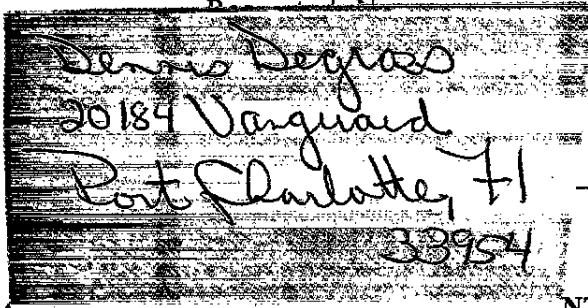 Dennis Degross
20184 Vanguard
Port Charlotte, Fl
33954